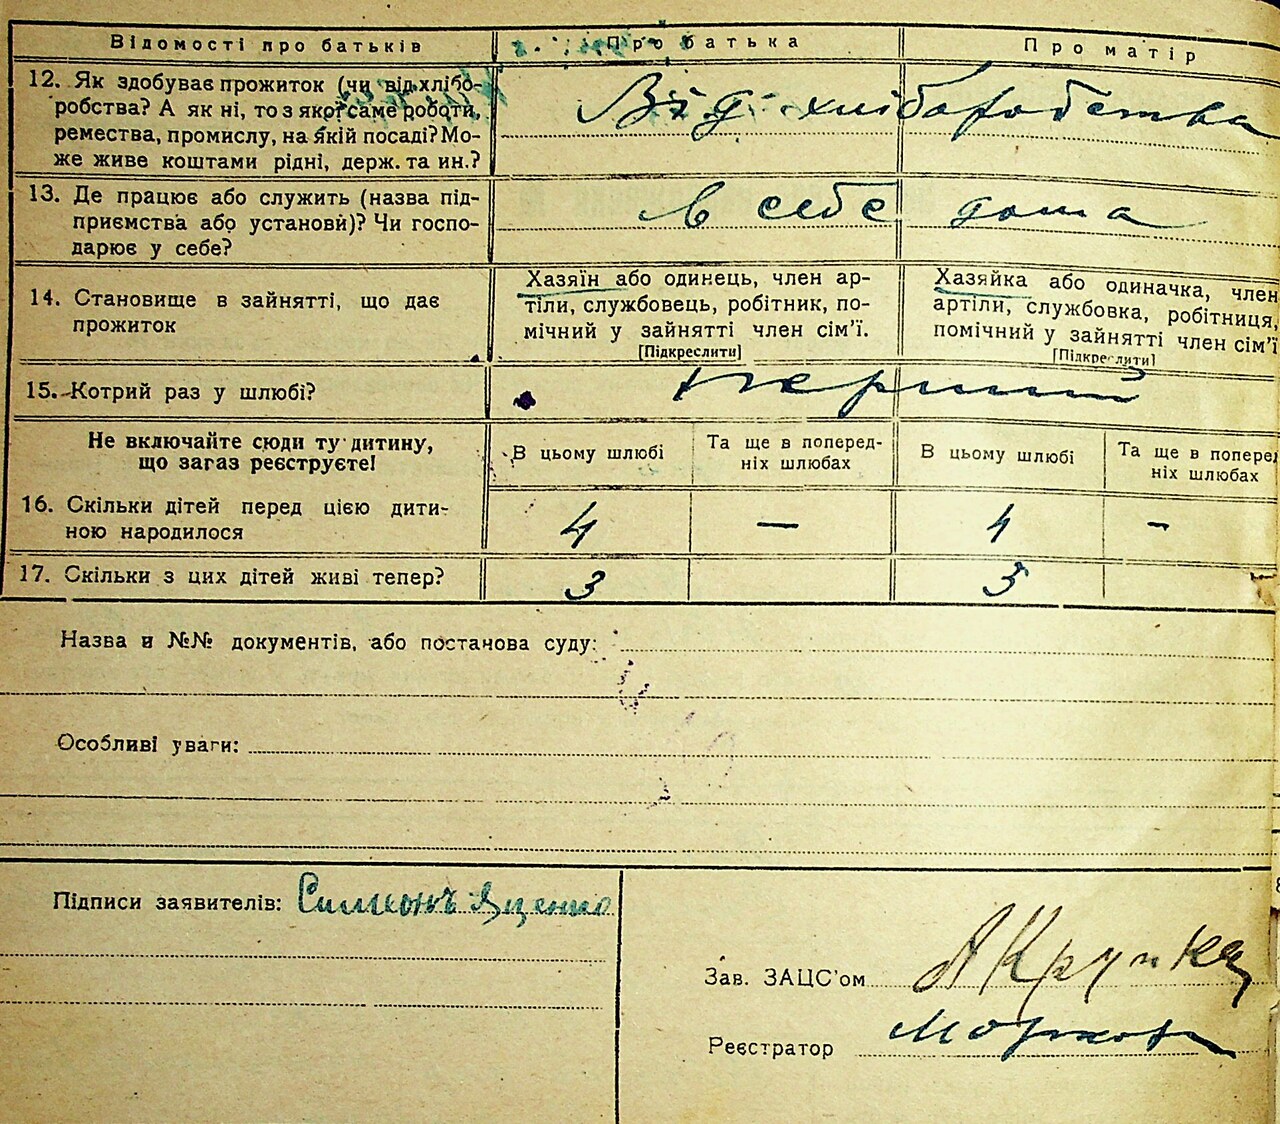 Відомості про батьків
Про батька
Про матір
12. Як здобуває прожиток (чи від хлібо-
робства? А як ні, то з якої саме роботи,
ремества, промислу, на якій посаді? Мо-
же живе коштами рідні, держ. та ин.?
Від хліборобства
13. Де працює або служить (назва під-
приємства або установи)? Чи госпо-
дарює у себе?
в себе дома
14. Становище в зайнятті, що дає
прожиток
Хазяїн або одинець, член ар-
тіли, службовець, робітник, по-
мічний у зайнятті член сім'ї.
[Підкреслити]
Хазяйка або одиначка, член
артіли, службовка, робітниця,
помічний у зайнятті член сім'ї
[Підкреслити]
15. Котрий раз у шлюбі?
перший
Не включайте сюди ту дитину,
що загаз реєструєте!
В цьому шлюбі
Та ще в поперед-
ніх шлюбах
В цьому шлюбі
Та ще в поперед
ніх шлюбах
16. Скільки дітей перед цією дити-
ною народилося
4
—
4
-
17. Скільки з цих дітей живі тепер?
3
3
Назва и №№ документів, або постанова суду:
Особливі уваги:
Підписи заявителів: Симхонъ Яценко
Зав. ЗАЦС'ом
А Крупка
Реєстратор